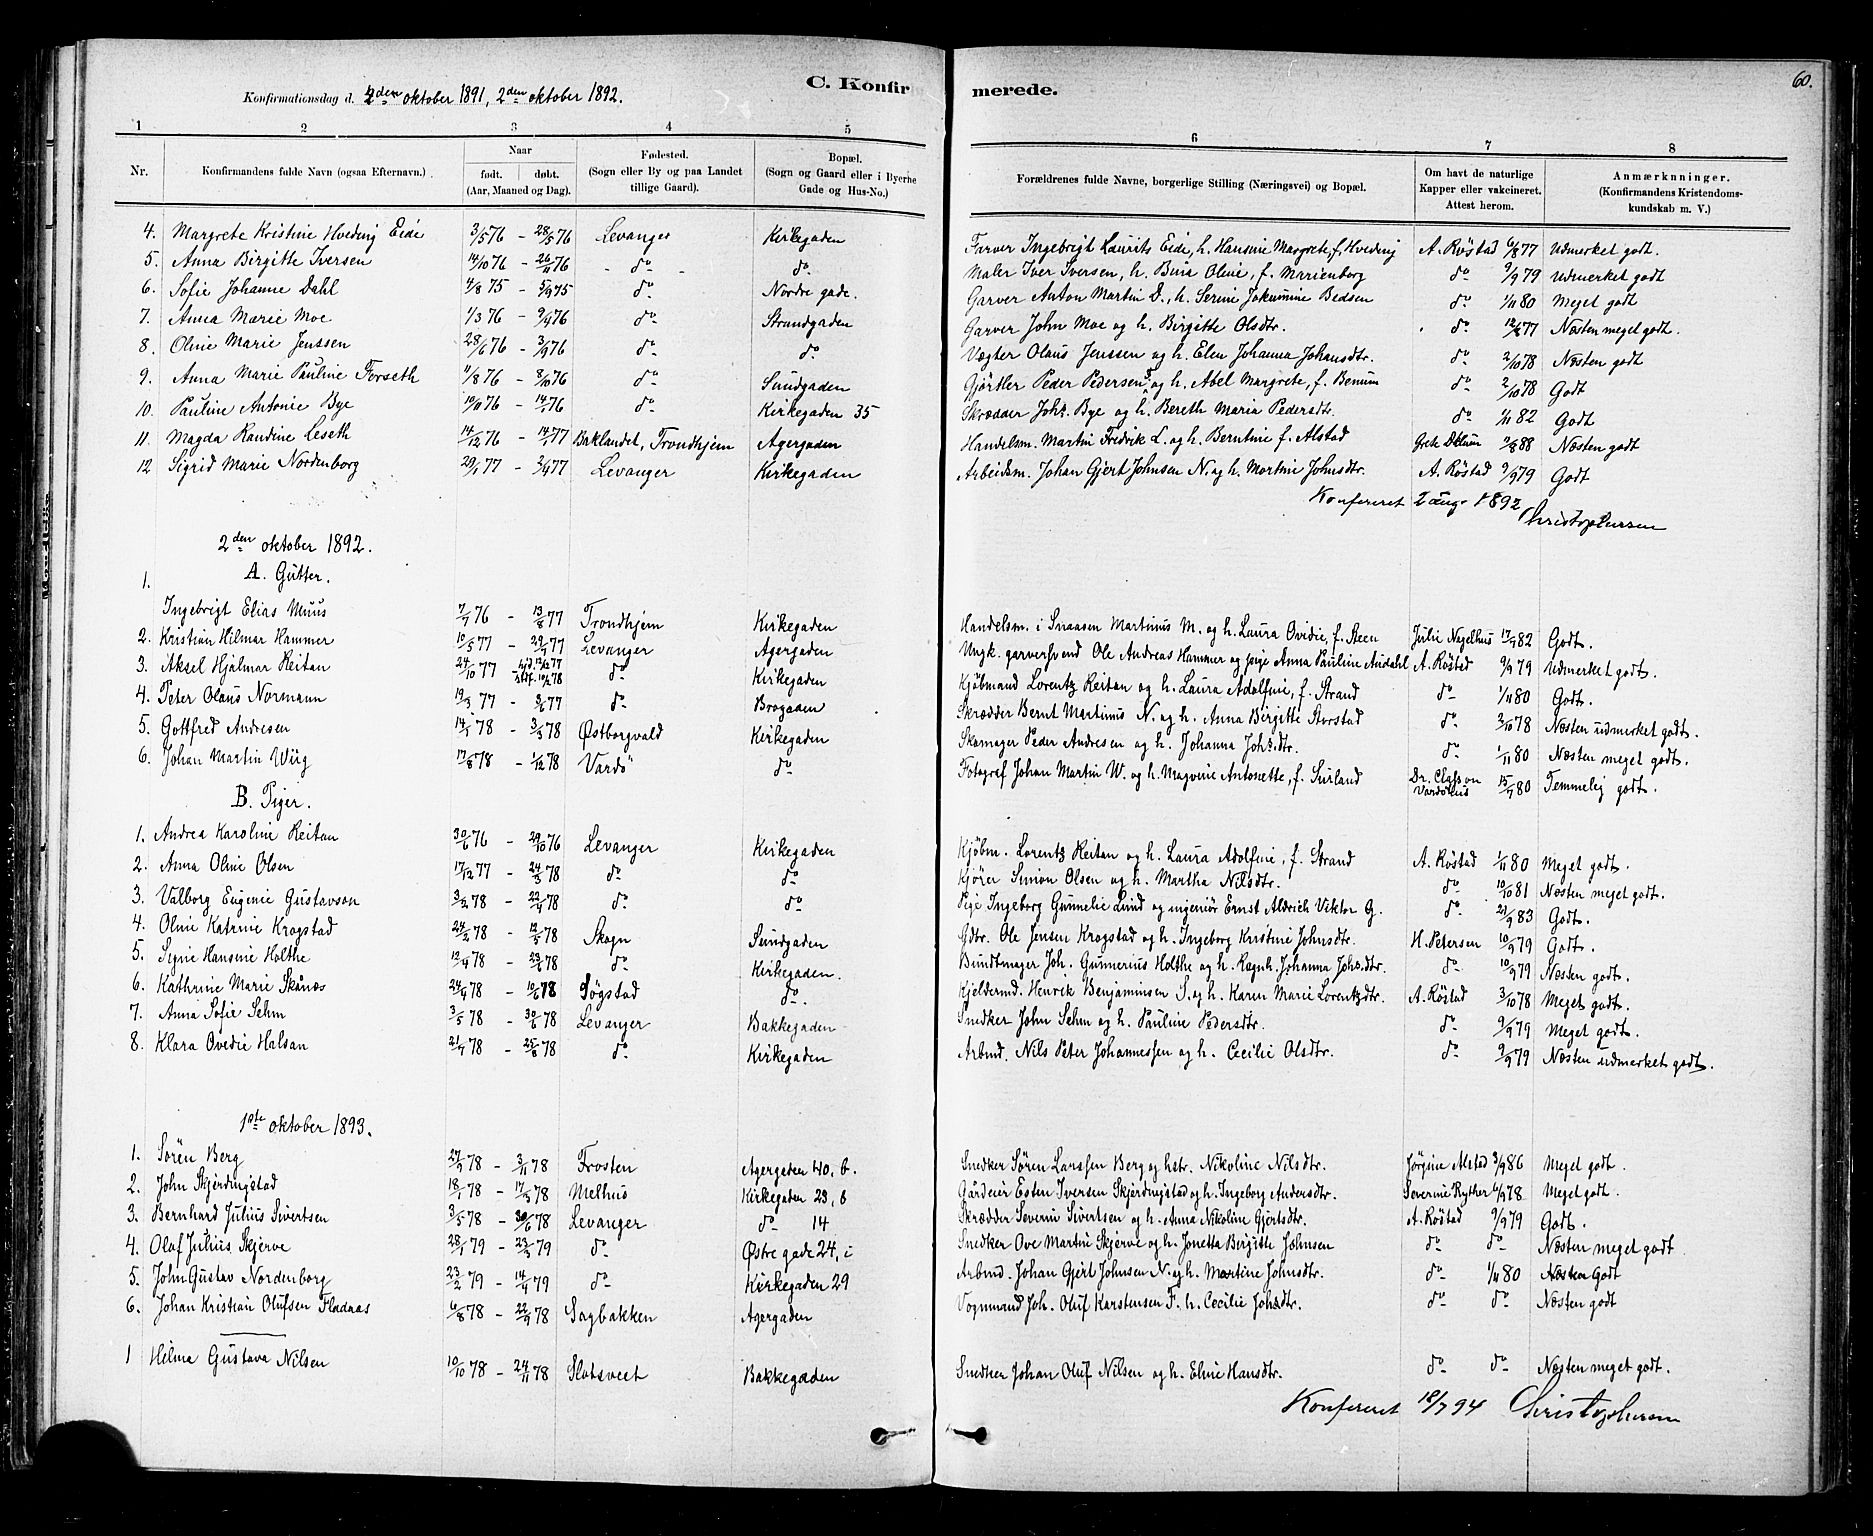 60.
C. Konfirmerede.
Konfirmationsdag d. 4den oktober 1891, 2den oktober 1892.
1 2 3 4 5 6 7 8
Nr. Konfirmandens fulde Navn (ogsaa Efternavn.) Naar født. døbt. (Aar, Maaned og Dag). Fødested. (Sogn eller By og paa Landet tillige Gaard). Bopæl. (Sogn og Gaard eller i Byerne Gade og Hus-No.) Forældrenes fulde Navne, borgerlige Stilling (Næringsvei) og Bopæl. Om havt de naturlige Kapper eller vakcineret. Attest herom. Anmærkninger. (Konfirmandens Kristendoms-kundskab m. V.)
4. Margrete Kristine Hveding Eide 3/5 76 - 28/5 76 Levanger Kirkegaden Farver Ingebrigt Laurits Eide, h. Hansine Margrete, f. Hveding A. Röstad 6/8 77 Udmerket godt.
5. Anna Birgitte Iversen 14/10 76 - 26/11 76 do do Maler Iver Iversen, h. Bina Oline, f. Marienborg do 9/9 79 Udmerket godt
6. Sofie Johanne Dahl 4/8 75 - 5/9 75 do Nordre gade. Garver Anton Martin D., h. Serine Jakumine Bedsen do 1/11 80 Meget godt
7. Anna Marie Moe 1/3 76 - 9/9 76 do Strandgaden Garver John Moe og h. Birgitte Olsdtr. do 12/8 77 Næsten meget godt.
8. Oline Marie Jenssen 28/6 76 - 3/9 76 do do Vægter Olaus Jenssen og h. Elen Johanna Johansdtr. do 2/10 78 Næsten godt
9. Anna Marie Pauline Forseth 11/8 76 - 8/10 76 do Sundgaden Gjörtler Peder Pedersen og h. Abel Margrete, f. Benum do 2/10 78 Godt
10. Pauline Antonie Bye 10/10 76 - 14/1 76 do Kirkegaden 35 Skrædder Johs. Bye og h. Bereth Maria Pedersdtr. do 1/11 82 Godt
11. Magda Randine Leseth 14/12 76 - 14/1 77 Baklandet, Trondhjem Agergaden Handelsm. Martin Fredrik L. og h. Berntine f. Alstad 9/8 88 Næsten godt
12 Sigrid Marie Nordenborg 29/1 77 - 3/9 77 Levanger Kirkegaden Arbeidsm. Johan Gjert Johnsen N. og h. Martine Johnsdtr. A. Röstad 9/9 79 Godt
Konfereret 2 aug. 1892 Christophersen
2den oktober 1892.
A. Gutter.
1. Ingebrigt Elias Muus 7/7 76 - 13/8 77 Trondhjem Kirkegaden Handelsm. i Snaasen Martinus M. og h. Laura Ovidie, f. Steen Julie Nagelhus 17/9 82 Godt.
2. Kristian Hilmar Hammer 10/5 77 - 29/7 77 Levanger Agergaden Ungk. garversvend Ole Andreas Hammer og pige Anna Pauline Audahl A. Röstad 9/9 79 Udmerket godt.
3. Aksel Hjalmar Reitan 24/10 77 hjd. 12/12 77 10/2 78 do Kirkegaden Kjöbmand Lorentz Reitan og h. Laura Adolfine, f. Strand do 1/11 80 Godt.
4. Peter Olaus Normann 19/3 77 - 3/6 77 do Brogaden Skrædder Bernt Martinus N. og h. Anna Birgitte Storstad do 2/10 78 Næsten udmerket godt.
5. Gottfred Andresen 14/1 78 - 3/3 78 Østborgvald Kirkegaden Skomager Peder Andresen og h. Johanna Johs.dtr. do 1/11 80 Næsten meget godt.
6. Johan Martin Wiig 17/8 78 - 1/12 78 Vardö do Fotograf Johan Martin W. og h. Magvine Antonette, f. Surland Dr. Classon Vardöhus 15/7 80 Temmelig godt.
B. Piger.
1. Andrea Karoline Reitan 30/6 76 - 29/10 76 Levanger Kirkegaden Kjöbm. Lorentz Reitan og h. Laura Adolfine, f. Strand A. Röstad 1/11 80 Meget godt.
2. Anna Oline Olsen 17/12 77 - 24/3 78 do do Kjörer Simon Olsen og h. Martha Nilsdtr. do 10/10 81 Næsten meget godt.
3. Valborg Eugenie Gustavson 3/2 78 - 22/4 78 do do Pige Ingeborg Gunnelie Lund og ingeniör Ernst Aldrich Viktor G. do 21/9 83 Godt.
4. Oline Katrine Krogstad 24/2 78 - 12/5 78 Skogn Sundgaden Gdbr. Ole Jensen Krogstad og h. Ingeborg Kristine Johnsdtr. H. Petersen 10/9 79 Godt.
5. Signe Hansine Holthe 12/4 78 - 23/6 78 do Kirkegaden. Bundtmager Joh. Gunnerius Holthe og h. Ragnh. Johanna Johs.dtr. do 10/9 79 Næsten godt.
6. Kathrine Marie Skånes 24/4 78 - 10/6 78 Søgstad do. Kjeldermd. Henrik Benjaminsen S. og h. Karen Marie Lorentzdtr. A. Röstad 3/10 78 Meget godt.
7. Anna Sofie Sehm 3/5 78 - 30/6 78 Levanger Bakkegaden Snedker John Sehm og h. Pauline Pedersdtr. do 9/9 79 Meget godt.
8. Klara Ovedie Halsan 21/7 78 - 25/8 78 do Kirkegaden Arbmd. Nils Peter Johannessen og h. Cecilie Olsdtr. do 9/9 79 Næsten udmerket godt.
1ste oktober 1893.
1. Sören Berg 27/9 78 - 3/11 78 Frosten Agergaden 40, b. Snedker Sören Larssen Berg og hstr. Nikoline Nilsdtr. Jörgine Alstad 3/9 86 Meget godt.
2. John Skjerdingstad 18/1 78 - 17/3 78 Melhus Kirkegaden 23, b Gårdeier Esten Iversen Skjerdingstad og h. Ingeborg Andersdtr. Severine Ryther 6/9 78 Meget godt.
3. Bernhard Julius Sivertsen 3/5 78 - 30/6 78 Levanger do 14 Skrædder Severin Sivertsen og h. Anna Nikoline Gjertsdtr. A. Röstad 9/9 79 Godt.
4. Olaf Julius Skjerve 28/1 79 - 23/3 79 do Østre gade 24, i Snedker Ove Martin Skjerve og h. Jonetta Birgitte Johnsen do do Næsten meget godt
5. John Gustav Nordenborg 23/2 79 - 14/4 79 do Kirkegaden 29 Arbmd. Johan Gjert Johnsen N. og h. Martine Johnsdtr. do 1/11 80 Næsten Godt
6. Johan Kristian Olufsen Fladnas 6/8 78 - 22/9 78 Sagbakken Agergaden Vognmand Joh. Oluf Karstensen F. h. Cecilie Johsdtr. do do Næsten godt
1 Hilma Gustava Nilsen 10/10 78 - 24/11 78 Slotsveet Bakkegaden Snedker Johan Oluf Nilsen og h. Eline Hansdtr. do do Næsten meget godt.
Konfereret 18/7 94 Christophersen